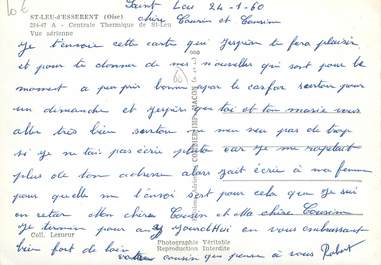 10 €
Saint Leu 24-1-60
ST-LEU-d'ESSERENT (Oise)
294-47 A - Centrale Thermique de St-Leu
Vue aérienne
chère Cousin et Cousine
Je t'envoie cette carte qui j'espère te fera plaisir
et pour te donner de mes nouvelles qui sont pour le
moment a peu près bonne par le cafar surtou pour
un dimanche et j'espère que toi et ton marie vous
aller très bien surtou
si je ne tait pas écrie plutot car je me rapelait
plus de ton adresse alors jait écrie à ma femme
pour quelle me l'envoi sont pour cela que je sui
en retar Mon chère Cousin et Ma chère Cousine
Je termin pour aujourd'Hui en vous embrassant
bien fort de loin
votre cousin qui pense à vous Robert
Coll. Lemeur
Photographie Véritable
Reproduction Interdite
COMBIER IMP. MACON